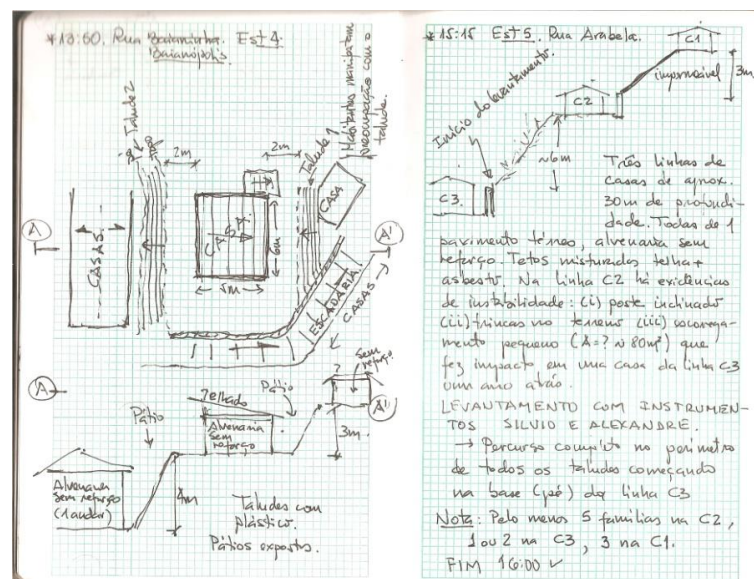 *13:50. Rua Baianinha. Est 4.
Baianópolis.
Talude 2
2m
2m
Talude 1
Habitantes manifestam
preocupação com o
talude.
CASAS.
CASA
CASA
6m
5m
ESCADARIA
CASAS
A
A'
A
A'
Pátio
Telhado
Pátio
Sem
reforço.
?
Alvenaria
Sem
reforço
3m
Alvenaria
Sem reforço
(1 andar)
4m
Taludes com
plástico.
Pátios expostos.
*15:15 Est 5. Rua Arabela.
C1
3m
impermeável
C2
Início do levantamento.
~6m
C3.
Três linhas de
casas de aprox.
30m de profundi-
dade. Todas de 1
pavimento térreo, alvenaria sem
reforço. Tetos misturados telha +
asbesto. Na linha C2 há evidências
de instabilidade: (i) poste inclinado
(ii) trincas no terreno (iii) escorrega-
mento pequeno (A=? ≈ 80m²) que
fez impacto em uma casa da linha C3
um ano atrás.
LEVANTAMENTO COM INSTRUMEN-
TOS SILVIO E ALEXANDRE.
→ Percurso completo no perímetro
de todos os taludes começando
na base (pé) da linha C3
Nota: Pelo menos 5 famílias na C2,
1 ou 2 na C3, 3 na C1.
FIM 16:00 ✓